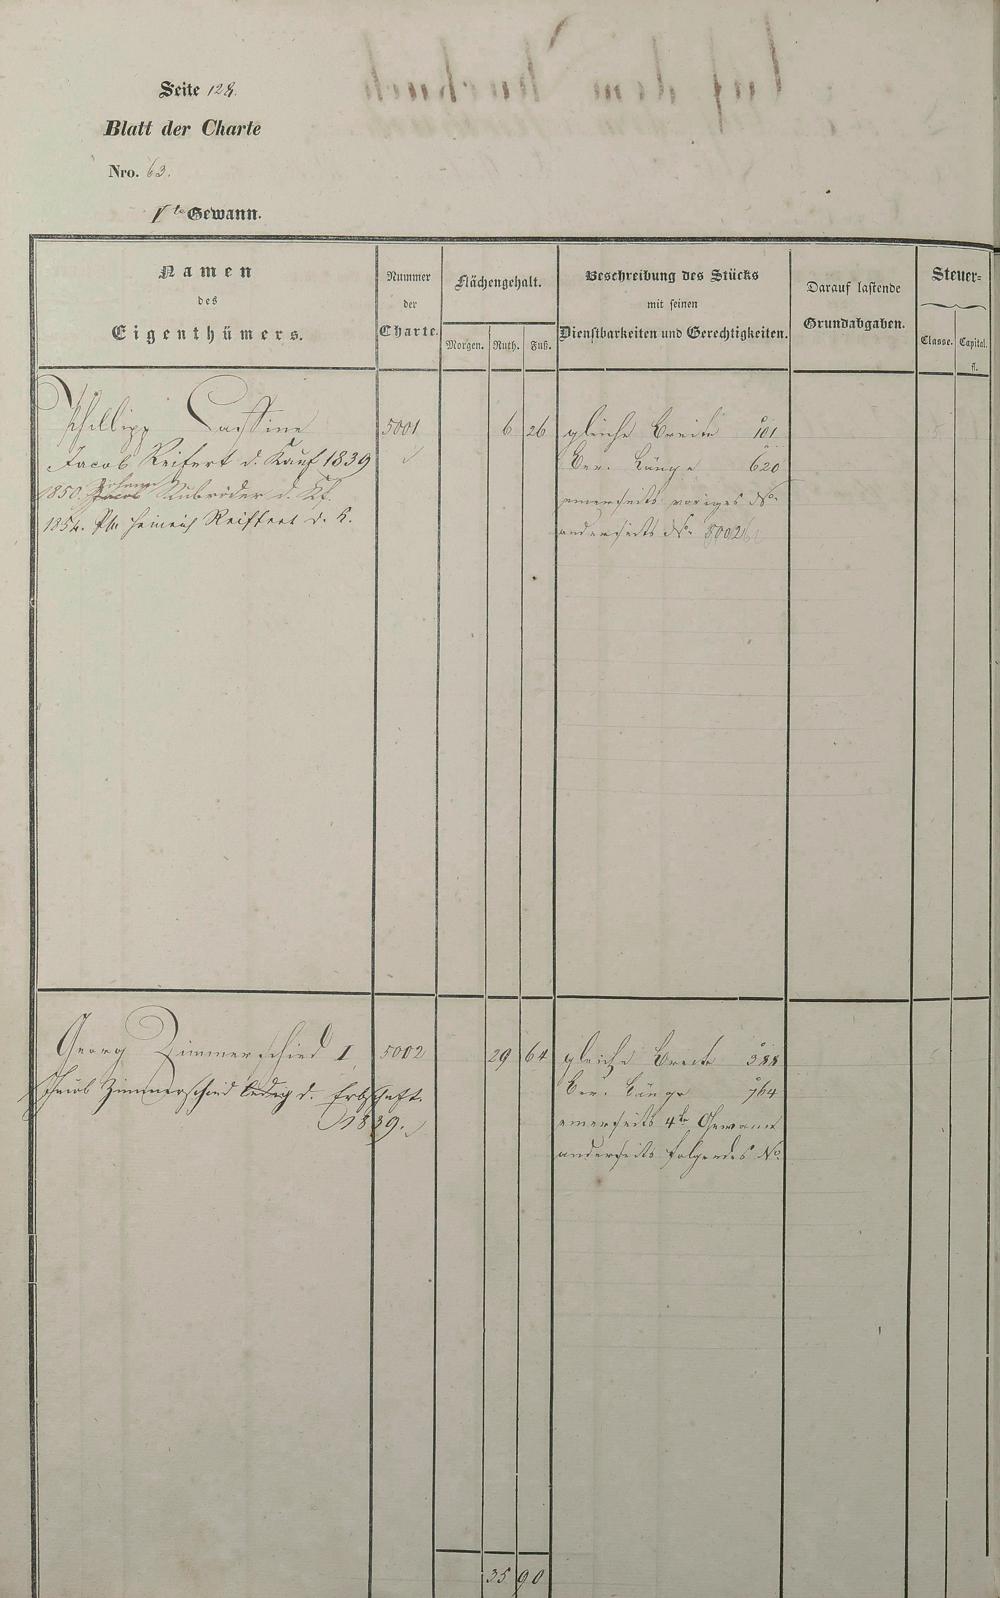 Seite 128.
Blatt der Charte
Nro. 63.
1te Gewann.
Namen
des
Eigenthümers.
Nummer
der
Charte.
Flächengehalt.
Morgen. Ruth. Fuß.
Beschreibung des Stücks
mit seinen
Dienstbarkeiten und Gerechtigkeiten.
Darauf lastende
Grundabgaben.
Steuer-
Classe. Capital.
fl.
Phillipp 5001 6 26 gleiche Breite 101
Jacob Reifert d. Kauf 1839 Ber. Länge 620
1850. Johann Jacob Kubröder d. Kf. einerseits voriges No.
1854. Ph. Heinrich Reiffert d. K. anderseits No. 5002
Georg Zimmerschied I 5002 29 64 gleiche Breite 388
Jacob Zimmerschied ledig d. Erbschaft. Ber. Länge 764
1839. einerseits 4te Gewann
anderseits folgendes No.
35 90